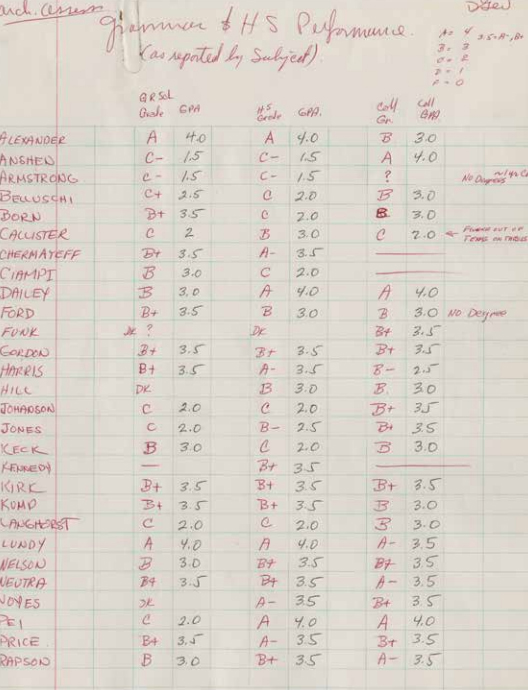 arch. assess
Grammar & HS Performance.
(as reported by Subject).
A = 4 3.5=A-, B+
B = 3
C = 2
D = 1
F = 0
GR Scl Grade GPA HS Grade GPA. Coll Gr. Coll GPA
ALEXANDER A 4.0 A 4.0 B 3.0
ANSHEN C- 1.5 C- 1.5 A 4.0
ARMSTRONG C- 1.5 C- 1.5 ? No Degrees
BELLUSCHI C+ 2.5 C 2.0 B 3.0
BORN B+ 3.5 C 2.0 B 3.0
CALLISTER C 2 B 3.0 C 2.0 ← FLUNKED OUT OF TEXAS
CHERMAYEFF B+ 3.5 A- 3.5 —
CIAMPI B 3.0 C 2.0 —
DAILEY B 3.0 A 4.0 A 4.0
FORD B+ 3.5 B 3.0 B 3.0 NO Degree
FUNK DK ? DK B+ 3.5
GORDON B+ 3.5 B+ 3.5 B+ 3.5
HARRIS B+ 3.5 A- 3.5 B- 2.5
HILL DK B 3.0 B 3.0
JOHANSON C 2.0 C 2.0 B+ 3.5
JONES C 2.0 B- 2.5 B+ 3.5
KECK B 3.0 C 2.0 B 3.0
KENNEDY — B+ 3.5 —
KIRK B+ 3.5 B+ 3.5 B+ 3.5
KUMP B+ 3.5 B+ 3.5 B 3.0
LANGHORST C 2.0 C 2.0 B 3.0
LUNDY A 4.0 A 4.0 A- 3.5
NELSON B 3.0 B+ 3.5 B+ 3.5
NEUTRA B+ 3.5 B+ 3.5 A- 3.5
NOYES DK A- 3.5 B+ 3.5
PEI C 2.0 A 4.0 A 4.0
PRICE B+ 3.5 A- 3.5 B+ 3.5
RAPSON B 3.0 B+ 3.5 A- 3.5